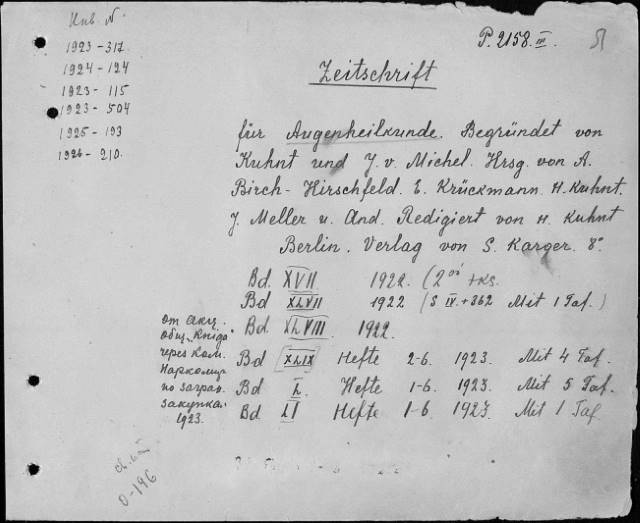 Инв. №
1923-317.
1924-124
1923-115
1923-504
1925-193
1926-210.
P. 2158. III.
Zeitschrift
für Augenheilkunde. Begründet von
Kuhnt und J. v. Michel. Hrsg. von A.
Birch-Hirschfeld. E. Krückmann. H. Kuhnt.
J. Meller u. And. Redigiert von H. Kuhnt
Berlin. Verlag von S. Karger. 8°
Bd. XVII 1922. (2ой экз.
Bd XLVII 1922 (S IV+362 Mit 1 Taf.)
Bd XLVIII 1922.
Bd XLIX Hefte 2-6. 1923. Mit 4 Taf.
Bd L Hefte 1-6. 1923. Mit 5 Taf.
Bd LI Hefte 1-6. 1923. Mit 1 Taf
от акц.
общ. Книга
через Ком.
Наркомпр
по загран.
закупкам
1923.
0-196